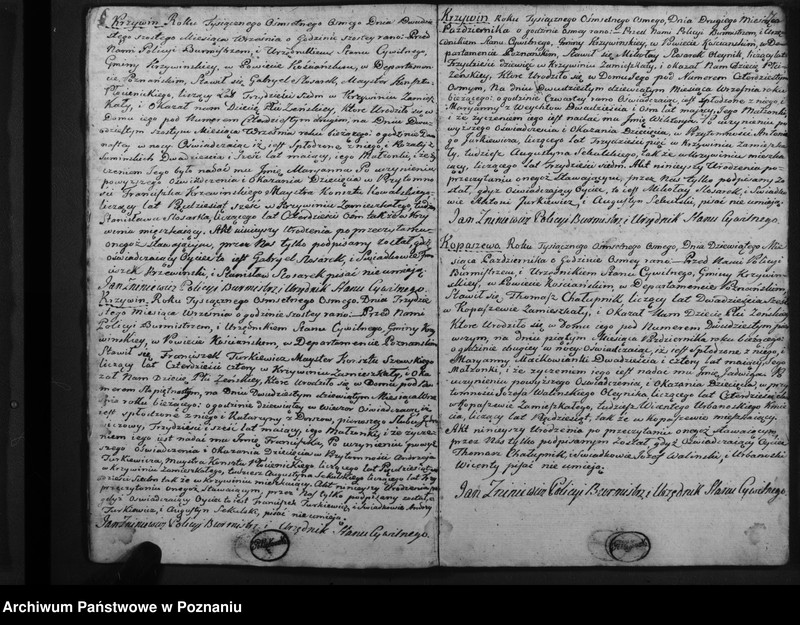 Krzywin Roku Tysiącznego Osmsetnego Osmego Dnia Dwudzie
stego szóstego Miesiąca Września o Godzinie szóstey rano: Przed
Nami Policyi Burmistrzem, i Urzędnikiem Stanu Cywilnego,
Gminy Krzywinskiey, w Powiecie Kościańskim, w Departamen
cie Poznańskim, Stawił się Gabryel Slosarek, Mayster Kunsztu
liczący Lat Trzydzieści Siedm w Krzywiniu Zamiesz
kały, i Okazał nam Dziecię Płci Żeńskiey, które Urodziło się w
Domu iego pod Numerem Czterdziestym drugim, na Dniu Dwu
dziestym szóstym Miesiąca Września roku bieżącego: o godzinie
w nocy Oświadczaiąc iż iest Spłodzone z niego, i Rozalii z
Dwadzieścia i Sześć lat maiący, iego Małżonki, i że ży
czeniem Jego było nadać mu Jmię Maryanna Po uczynieniu
powyższego oświadczenia i Okazania Dziecięcia w Przytomno
ści Franciszka Krzewinskiego Maystra Konsztu Kowalskiego
liczący lat Pięćdziesiąt sześć w Krzywiniu Zamieszkały, tudzież
Stanisława Slosarka, liczącego lat Czterdzieści Ośm także w Krzy
winiu mieszkaiący. Akt niniejszy Urodzenia po przeczytaniu
onegoż Stawaiącym, przez Nas tylko podpisany został, gdyż
oświadczaiący Oyciec to iest Gabryel Slosarek, i Świadkowie Fran
ciszek Krzewinski, i Stanisław Slosarek pisać nie umieią.
Jan Żniniewicz Policyi Burmistrz i Urzędnik Stanu Cywilnego.
Krzywin. Roku Tysiącznego Osmsetnego Osmego, Dnia Trzydzie
stego Miesiąca Września o Godzinie szóstey rano: Przed Nami
Policyi Burmistrzem, i Urzędnikiem Stanu Cywilnego, Gminy Krzy
winskiey, w Powiecie Kościańskim, w Departamencie Poznańskim
Stawił się Franciszek Turkiewicz Mayster Konsztu Szewskiego
liczący lat Czterdzieści cztery w Krzywiniu Zamieszkały, i Oka
zał Nam Dziecię Płci Żeńskiey, Które Urodziło się w Domu pod Nu
merem Stopiętnastym, na Dniu Dwudziestym dziewiątym Miesiąca Wrze
śnia roku bieżącego: o godzinie dziewiątey w wieczór Oświadczaiąc iż
iest spłodzone z niego i Katarzyny z
Trzydzieści i sześć lat maiący, iego Małżonki, i że życze
niem iego iest nadać mu Jmię Franciszka, Po uczynieniu powyż
szego Oświadczenia i Okazania Dziecięcia w Przytomności Andrzeja
Turkiewicza, Maystra Konsztu liczącego lat
w Krzywiniu zamieszkałego, tudzież Augustyna Sekulskiego liczącego lat Trzy
dzieści Siedm także w Krzywiniu mieszkaiący. Akt ninieyszy Urodzenia po
przeczytaniu onegoż Stawaiącym, przez Nas tylko podpisany został,
gdyż Oświadczaiący Oyciec to iest Franciszek Turkiewicz, i Świadkowie Andrzey
Turkiewicz, i Augustyn Sekulski, pisać nie umieią.
Jan Żniniewicz Policyi Burmistrz i Urzędnik Stanu Cywilnego.
Krzywin Roku Tysiącznego Osmsetnego Osmego, Dnia Drugiego Miesiąca
Października o godzinie osmey rano: Przed Nami Policyi Burmistrzem, i Urzę
dnikiem Stanu Cywilnego, Gminy Krzywinskiey, w Powiecie Kościańskim, w De
partamencie Poznańskim, Stawił się Mikołay Slosarek Oleynik, liczący lat
Trzydzieście dziewięć w Krzywiniu Zamieszkały, i okazał Nam Dziecię Płci
Żeńskiey, Które Urodziło się w Domu Jego pod Numerem Czterdziestym
Osmym, Na Dniu Dwudziestym dziewiątym Miesiąca Września roku
bieżącego: o godzinie Czwartey rano Oświadczaiąc iż iest spłodzone z niego, i
Maryanny z Dwadzieścia i Ośm lat maiący, Jego Małżonki,
i że życzeniem Jego iest nadać mu Jmię Po uczynieniu po
wyższego Oświadczenia i Okazania Dziecięcia, w Przytomności Antonie
go Jurkiewicza, liczącego lat Trzydzieści pięć w Krzywiniu zamieszka
ły, tudzież Augustyna Sekulskiego, także w Krzywiniu mieszka
iący, liczący lat Trzydzieści siedm. Akt ninieyszy Urodzenia po
przeczytaniu onegoż Stawaiącym, przez Nas tylko podpisany zo
stał, gdyż Oświadczaiący Oyciec, to iest Mikołay Slosarek, i Świadko
wie Antoni Jurkiewicz, i Augustyn Sekulski, pisać nie umieią.
Jan Żniniewicz Policyi Burmistrz, i Urzędnik Stanu Cywilnego.
Kopaszewo Roku Tysiącznego Osmsetnego Osmego, Dnia Dziewiątego Mie
siąca Października o Godzinie Osmey rano: Przed Nami Policyi
Burmistrzem, i Urzędnikiem Stanu Cywilnego, Gminy Krzywin
skiey, w Powiecie Kościańskim, w Departamencie Poznańskim,
Stawił się Thomasz Chałupnik, liczący lat Dwadzieścia
w Kopaszewie Zamieszkały, i Okazał Nam Dziecię Płci Żeńskiey
Które Urodziło się, w Domu jego pod Numerem Dwudziestym pier
wszym, na dniu piątym Miesiąca Października roku bieżącego:
o godzinie drugiey w nocy Oświadczaiąc, iż iest spłodzone z niego, i
Maryanny Dwadzieścia i Cztery lat maiący, Jego
Małżonki: i że życzeniem jego iest nadać mu Jmię Jadwiga: Po
uczynieniu powyższego Oświadczenia, i Okazania Dziecięcia, w przy
tomności Józefa Walinskiego Oleynika, liczącego lat Czterdzieście
w Kopaszewie Zamieszkałego, tudzież Wincentego Urbanskiego Kmie
cia, liczący lat Pięćdziesiąt, także w Kopaszewie mieszkaiący.
Akt ninieyszy Urodzenia po przeczytaniu onegoż Stawaiącym,
przez Nas tylko podpisanym został gdyż Oświadczaiący Oyciec
Thomasz Chałupnik, i Świadkowie Józef Walinski, i Urbanski
Wicenty pisać nie umieią.
Jan Żniniewicz Policyi Burmistrz, i Urzędnik Stanu Cywilnego.
Archiwum Państwowe w Poznaniu